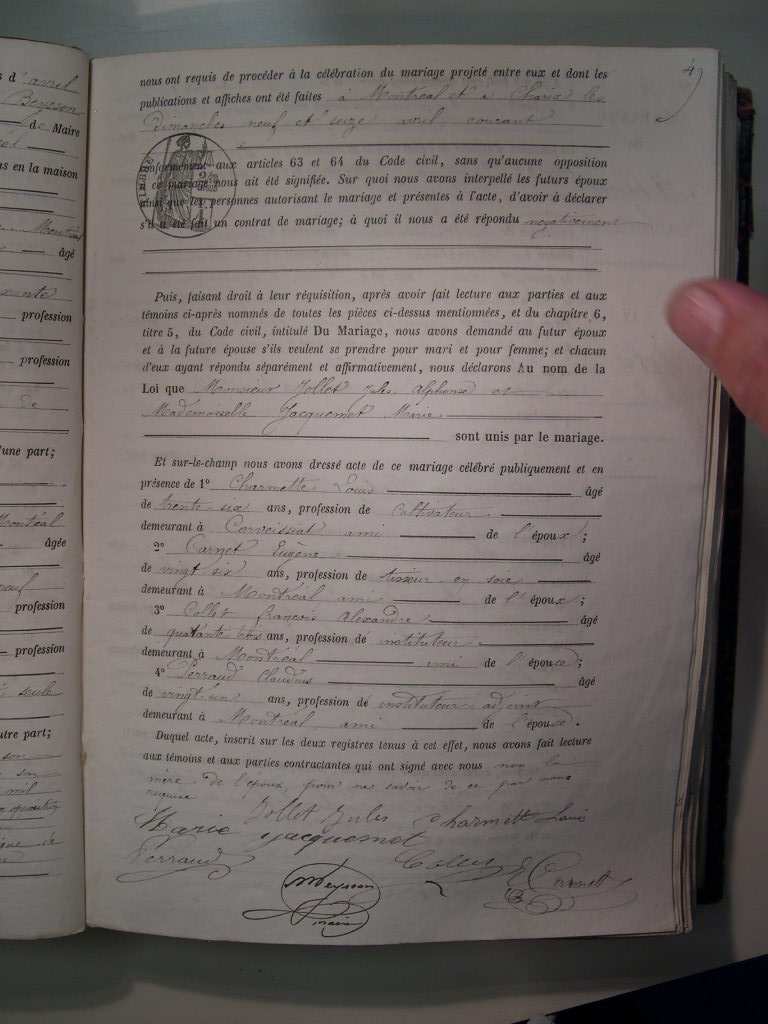 s d'avril
Beysson
de Maire
ns en la maison
Montréal
âgé
profession
profession
de
'une part;
Montréal
âgée
profession
profession
seule
utre part;
son
son
mil
4
nous ont requis de procéder à la célébration du mariage projeté entre eux et dont les
publications et affiches ont été faites à Montréal et à Charix les
Dimanches neuf et seize avril courant
conformément aux articles 63 et 64 du Code civil, sans qu'aucune opposition
à ce mariage nous ait été signifiée. Sur quoi nous avons interpellé les futurs époux
ainsi que les personnes autorisant le mariage et présentes à l'acte, d'avoir à déclarer
s'il a été fait un contrat de mariage; à quoi il nous a été répondu négativement
Puis, faisant droit à leur réquisition, après avoir fait lecture aux parties et aux
témoins ci-après nommés de toutes les pièces ci-dessus mentionnées, et du chapitre 6,
titre 5, du Code civil, intitulé Du Mariage, nous avons demandé au futur époux
et à la future épouse s'ils veulent se prendre pour mari et pour femme; et chacun
d'eux ayant répondu séparément et affirmativement, nous déclarons Au nom de la
Loi que Monsieur Jollet Jules Alphonse et
Mademoiselle Jacquemet Marie
sont unis par le mariage.
Et sur-le-champ nous avons dressé acte de ce mariage célébré publiquement et en
présence de 1° Charmette Louis âgé
de trente six ans, profession de cultivateur
demeurant à Corveissiat ami de l'époux;
2° Carnet Eugène âgé
de vingt six ans, profession de tisseur en soie
demeurant à Montréal ami de l'époux;
3° Collet françois Alexandre âgé
de quarante trois ans, profession de instituteur
demeurant à Montréal ami de l'épouse;
4° Perraud Claudius âgé
de vingt un ans, profession de instituteur adjoint
demeurant à Montréal ami de l'épouse.
Duquel acte, inscrit sur les deux registres tenus à cet effet, nous avons fait lecture
aux témoins et aux parties contractantes qui ont signé avec nous non la
mère de l'époux pour ne savoir de ce par nous
requise
Jollet Jules Charmette Louis
Marie Jacquemet
Perraud Collet E Carnet
Beysson
maire